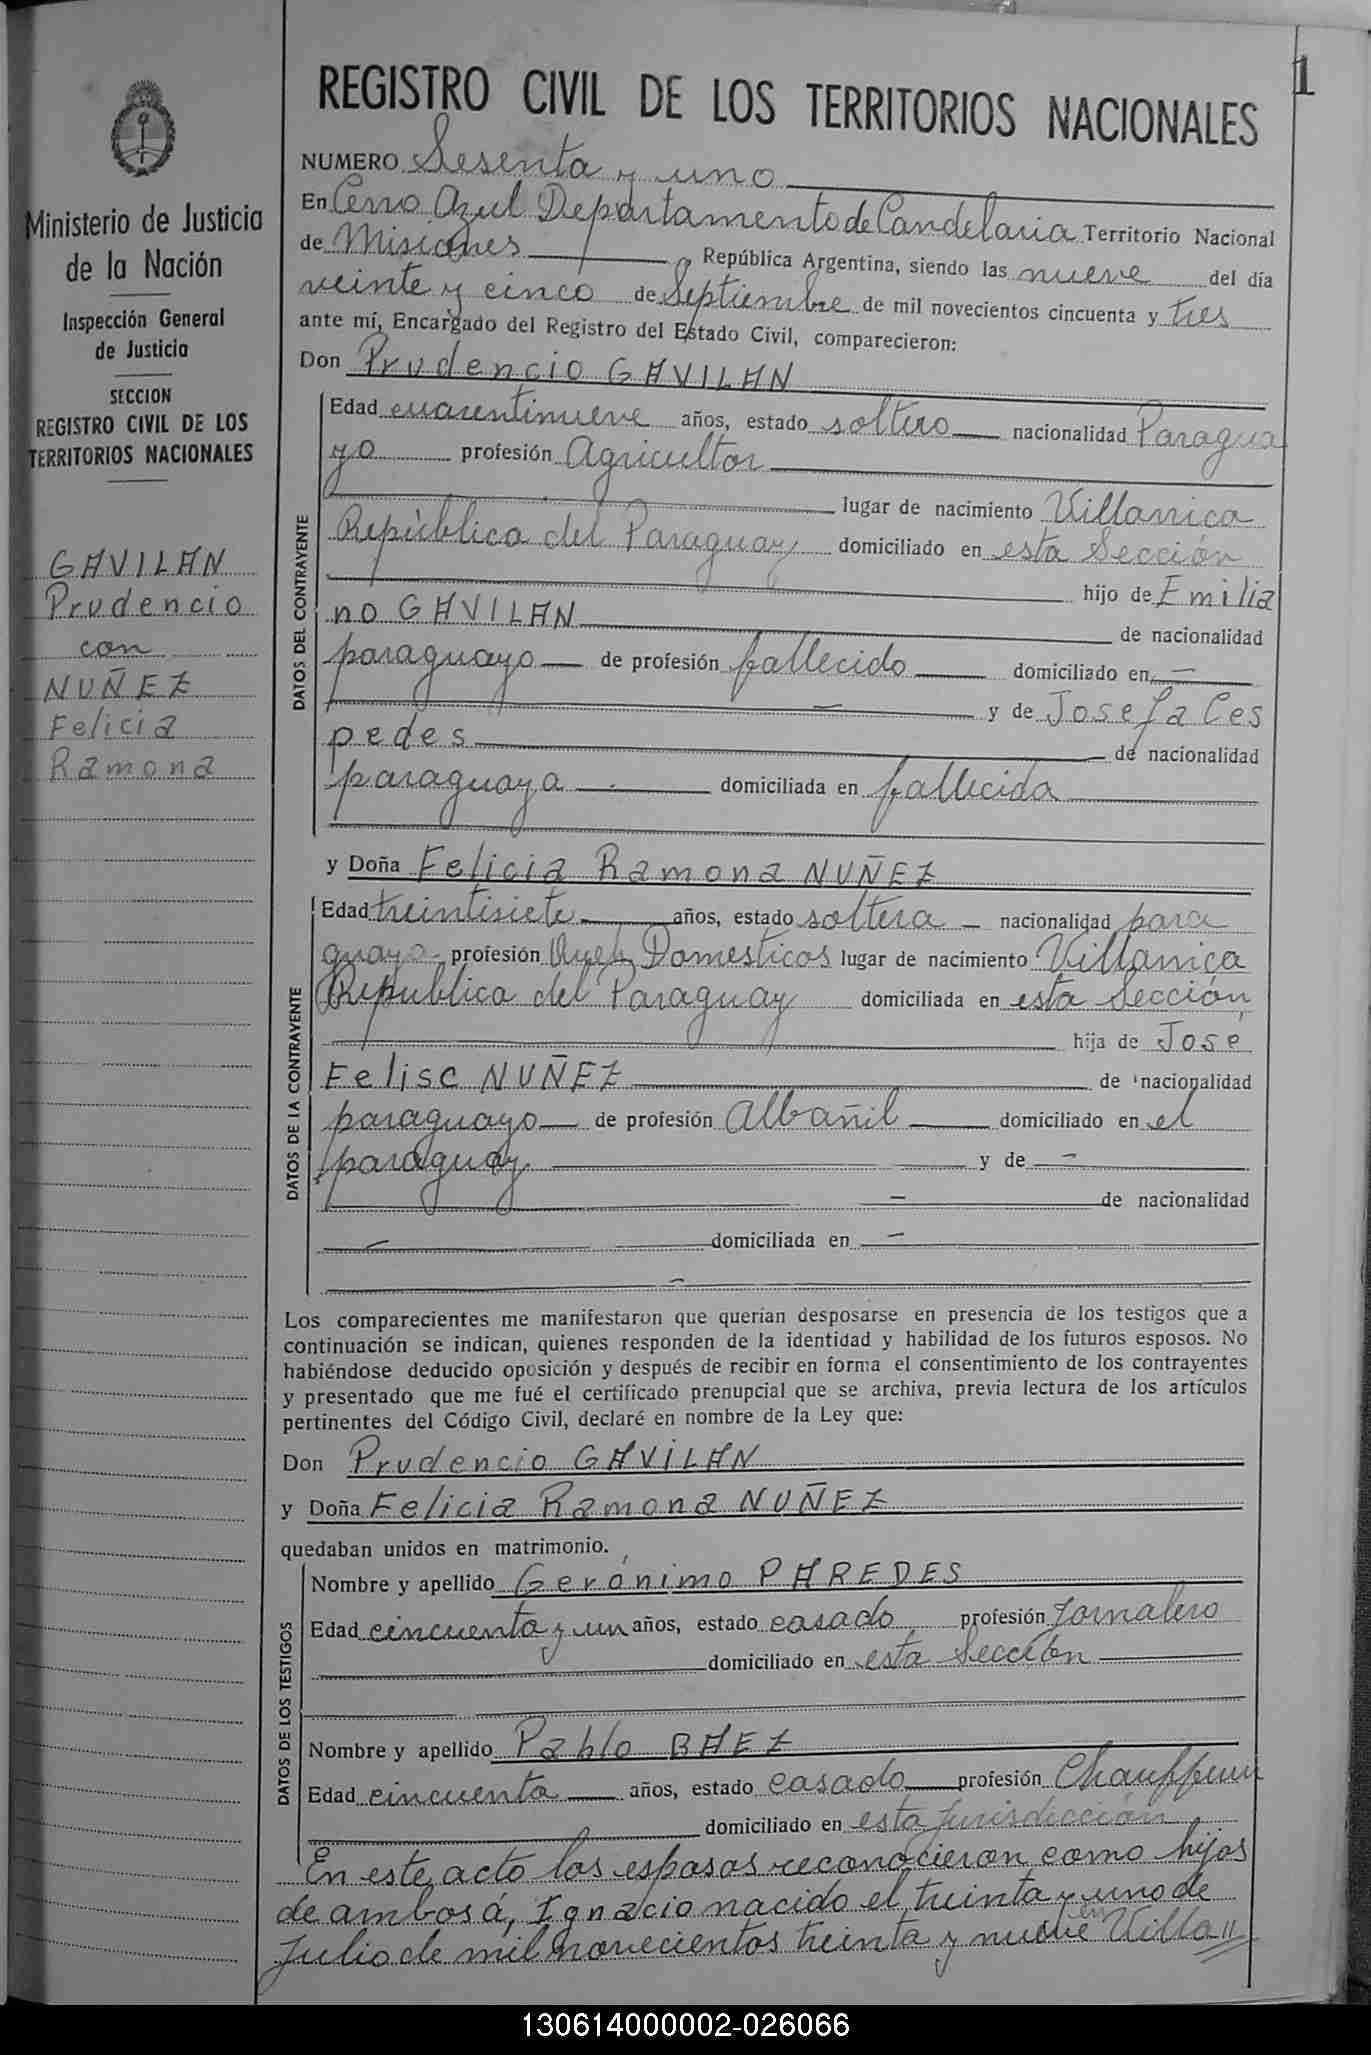 1
REGISTRO CIVIL DE LOS TERRITORIOS NACIONALES
Ministerio de Justicia
de la Nación
Inspección General
de Justicia
SECCION
REGISTRO CIVIL DE LOS
TERRITORIOS NACIONALES
GAVILAN
Prudencio
con
NUÑEZ
Felicia
Ramona
NUMERO Sesenta y uno
En Cerro Azul Departamento de Candelaria Territorio Nacional
de Misiones República Argentina, siendo las nueve del día
veinte y cinco de Septiembre de mil novecientos cincuenta y tres
ante mí, Encargado del Registro del Estado Civil, comparecieron:
Don Prudencio GAVILAN
DATOS DEL CONTRAYENTE
Edad cuarentinueve años, estado soltero nacionalidad Paragua
yo profesión Agricultor
lugar de nacimiento Villarrica
República del Paraguay domiciliado en esta Sección
hijo de Emilia
no GAVILAN de nacionalidad
paraguayo de profesión fallecido domiciliado en —
— y de Josefa Ces
pedes de nacionalidad
paraguaya domiciliada en fallecida
y Doña Felicia Ramona NUÑEZ
DATOS DE LA CONTRAYENTE
Edad treintisiete años, estado soltera nacionalidad para
guaya profesión Queh Domesticos lugar de nacimiento Villarrica
República del Paraguay domiciliada en esta Sección
hija de José
Felisc NUÑEZ de nacionalidad
paraguayo de profesión Albañil domiciliado en el
paraguay y de —
— de nacionalidad
— domiciliada en —
—
Los comparecientes me manifestaron que querían desposarse en presencia de los testigos que a
continuación se indican, quienes responden de la identidad y habilidad de los futuros esposos. No
habiéndose deducido oposición y después de recibir en forma el consentimiento de los contrayentes
y presentado que me fué el certificado prenupcial que se archiva, previa lectura de los artículos
pertinentes del Código Civil, declaré en nombre de la Ley que:
Don Prudencio GAVILAN
y Doña Felicia Ramona NUÑEZ
quedaban unidos en matrimonio.
DATOS DE LOS TESTIGOS
Nombre y apellido Gerónimo PAREDES
Edad cincuenta y un años, estado casado profesión Jornalero
domiciliado en esta Sección
Nombre y apellido Pablo BAEZ
Edad cincuenta años, estado casado profesión Chauffeur
domiciliado en esta Jurisdicción
En este acto los esposos reconocieron como hijos
de ambos á, Ignacio nacido el treinta y uno de
Julio de mil novecientos treinta y nueve en Villa //
130614000002-026066